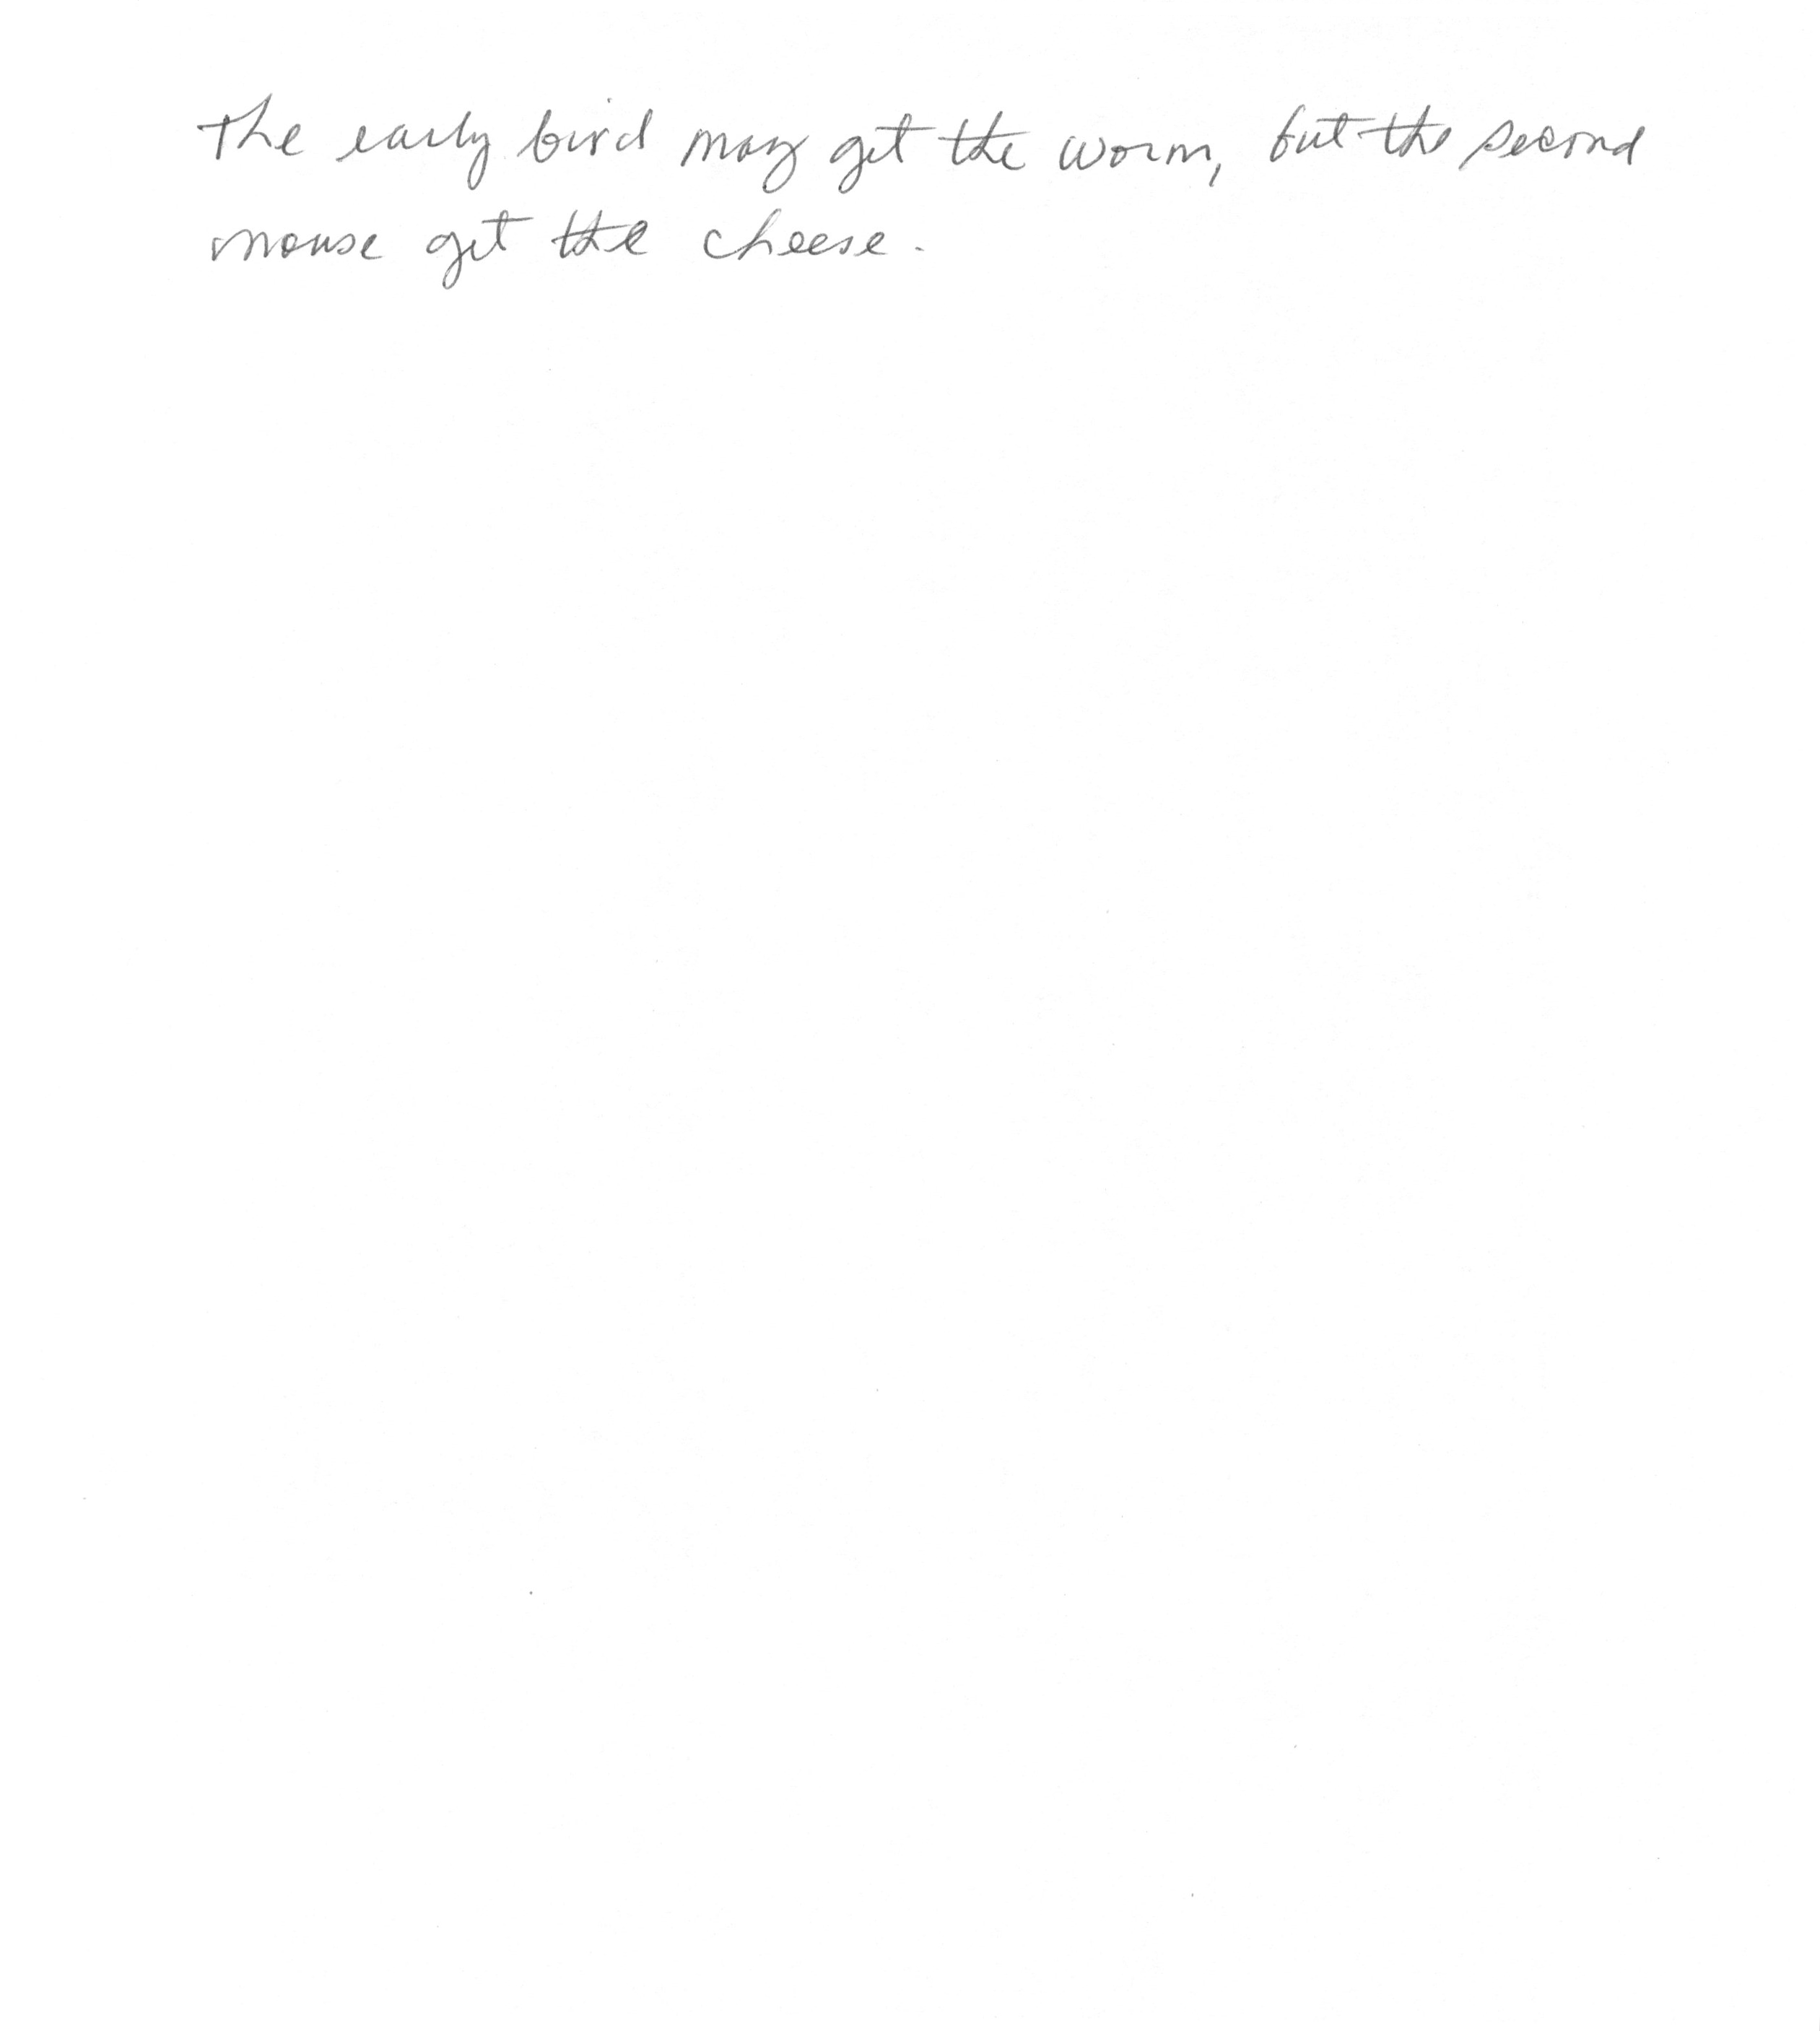 The early bird may get the worm, but the second
mouse get the cheese.